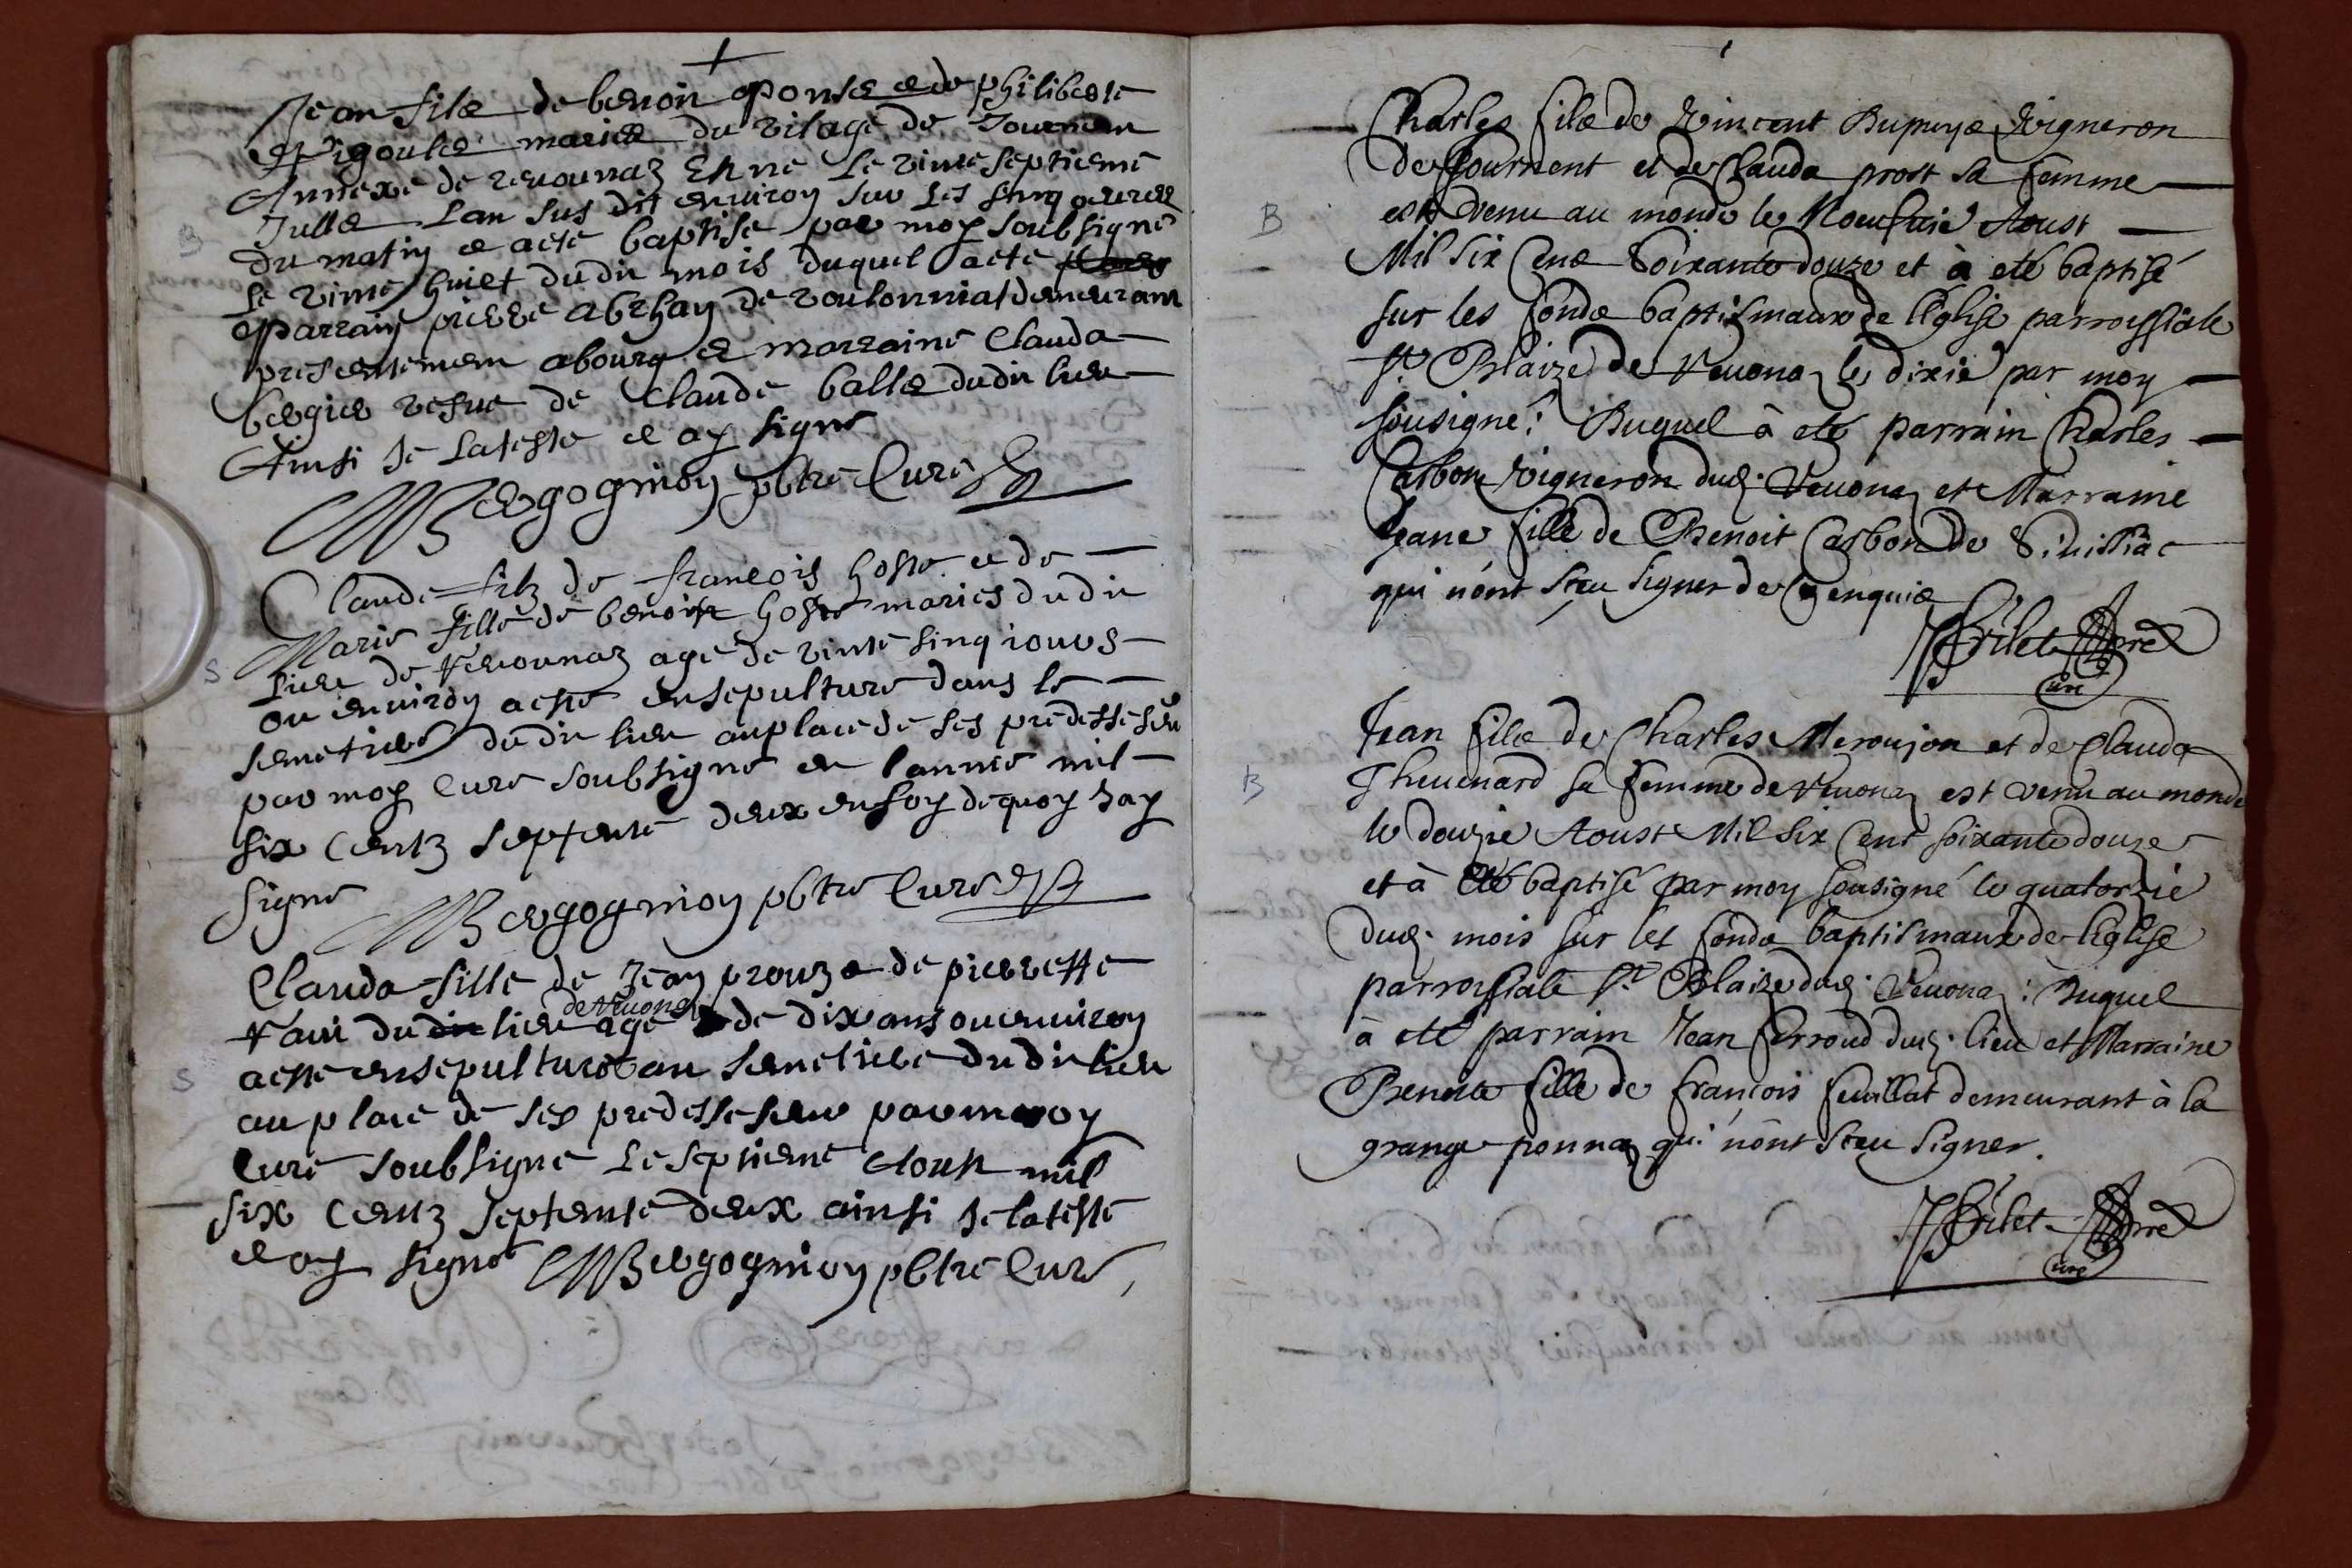 Jean filz de benoit ponse e de philiberte
Pigoulet mariez du vilage de Journan
Annexe de revonnaz Est né le vinte septieme
Julle Lan sus dit environ sur les sinq heures
du matin e a eté baptise par moy soubsigne
B
le vinte huiet dudit mois duquel a eté
parrain pierre abrhan de demeurant
presentement abourg e marraine Clauda
bergier vefue de Claude balle dudit lieu
Ainsi je lateste e ay signé
MBergognion pbtre Curé
Claude filz de francois hoste e de
Marie fille de benoist hoste maries dudit
S
Lieu de Revonnaz age de vinte sinq iours
ou environ a esté ensepulturé dans le
semetiere dudit lieu au place de ses predessesseu
par moy Curé soubsigné en lannee mil
six Centz septente deux en foy de quoy Jay
signé MBergognion pbtre Curé
Clauda fille de Jean prouz e de pierrette
vaui du dit lieu de Revonaz age de dix ans ou environ
S
a esté ensepulturé au semetiere du dit lieu
au place de ses predessesseur par moy
Curé soubsigné Le septieme Aoust mil
six Centz septente deux ainsi Je lateste
e ay signé MBergognion pbtre Curé
Charles filz de Vincent Dupuys Vigneron
de Journent et de Clauda prost sa femme
B
est venu au monde le Noeufuié Aoust
Mil Six Cens Soixante douze et à eté baptisé
sur les fonds baptismaux de l'Eglise parroissiale
St Blaize de Revona le dixié par moy
sousigné: Duquel à eté parrain Charles
Carbon Vigneron dud. Revona et Marraine
Jeane fille de Benoit Carbon de
qui n'ont sceu signer de ce enquis
JBrilet Pre
Curé
Jean filz de Charles Meroujon et de Clauda
B
Theuenard sa femme de Revona est venu au monde
le douzie Aoust Mil Six Cent soixante douze
et à eté baptisé par moy sousigné le quatorzié
dud. mois sur les fonds baptismaux de l'Eglise
parroissiale St Blaize dud. Revona: Duquel
à eté parrain Jean ferroud dud. lieu et Marraine
Benoite fille de françois feuillat demeurant à la
grange ponnaz qui n'ont sceu signer.
JBrilet Pre
Curé